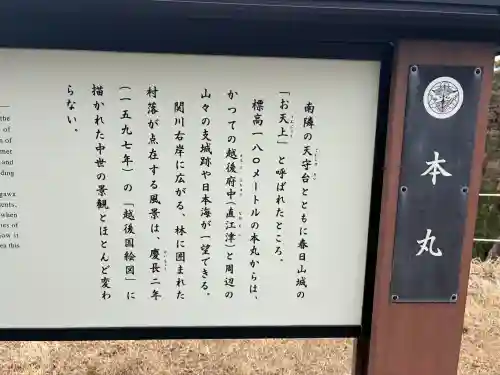 本丸
南隣の天守台とともに春日山城の
「お天上」と呼ばれたところ。
標高一八〇メートルの本丸からは、
かつての越後府中(直江津)と周辺の
山々の支城跡や日本海が一望できる。
関川右岸に広がる、林に囲まれた
村落が点在する風景は、慶長二年
(一五九七年)の「越後国絵図」に
描かれた中世の景観とほとんど変わ
らない。
the
of
of
met
and
dog
gawa
ents,
when
nes of
now it
ea this